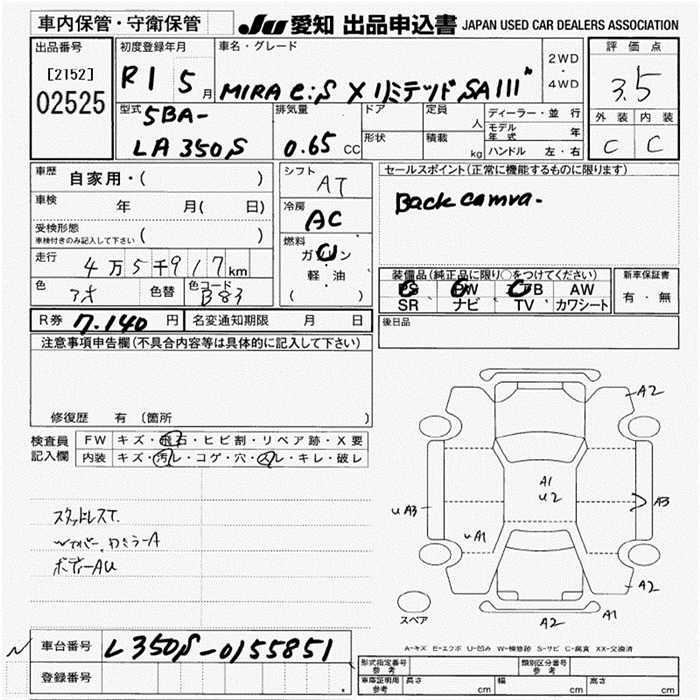 車内保管・守衛保管 JU 愛知 出品申込書 JAPAN USED CAR DEALERS ASSOCIATION
出品番号 初度登録年月 車名・グレード 2WD ・ 4WD 評価点
[2152] R1 5月 MIRA e:S X リミテッド SAIII" 3.5
02525
型式 排気量 ドア 定員 人 ディーラー・並行 外装 内装
5BA- 形状 積載 kg モデル年式 年
LA350S 0.65 CC ハンドル 左・右 C C
車歴 自家用・( ) シフト AT セールスポイント(正常に機能するものに限ります)
車検 年 月( 日) 冷房 AC Back camra.
受検形態 ( )
車検付きのみ記入して下さい
燃料 ガソリン
走行 4万5千917km 軽・油
装備品(純正品に限り○をつけてください) 新車保証書
色 色替 色コード B83 ( ) PS PW AB AW 有・無
SR ナビ TV カワシート
R券 7.140円 名変通知期限 月 日 後日品
注意事項申告欄(不具合内容等は具体的に記入して下さい)
修復歴 有 (箇所 )
検査員 FW キズ・飛石・ヒビ割・リペア跡・X要
記入欄 内装 キズ・汚レ・コゲ・穴・スレ・キレ・破レ
A2
A1
U2
UA3 A3
UA1
スタッドレスT.
ボディーAU
A2
スペア A2 A1
A-キズ E-エクボ U-凹み W-補修跡 S-サビ C-腐食 XX-交換済
車台番号 LA350S-0155851
登録番号
形式指定番号 参考 類別区分番号 参考
車庫証明用 参考 長さ cm 幅 cm 高さ cm